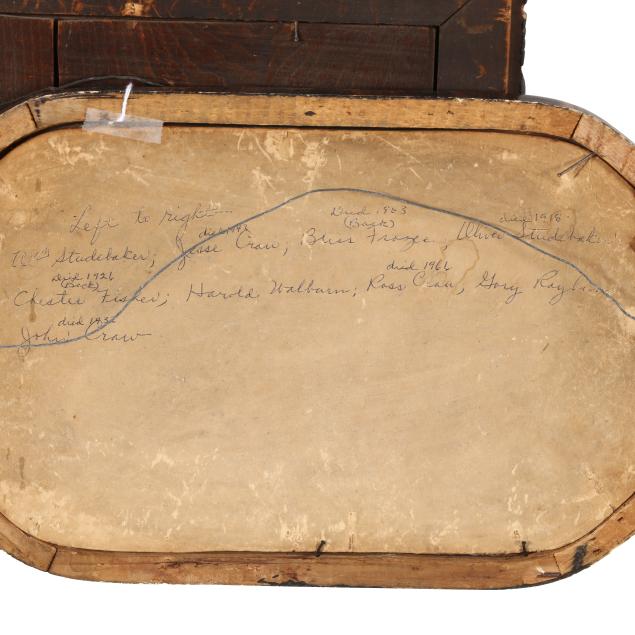 Left to right
Died 1953
(Back)
died 1918
died
Studebaker; Jesse Craw; Bliss Frazee, Oliver Studebaker;
Died 1926
(Back)
died 1966
Chester Fisher; Harold Walburn; Ross Craw, Gory
died
John Craw